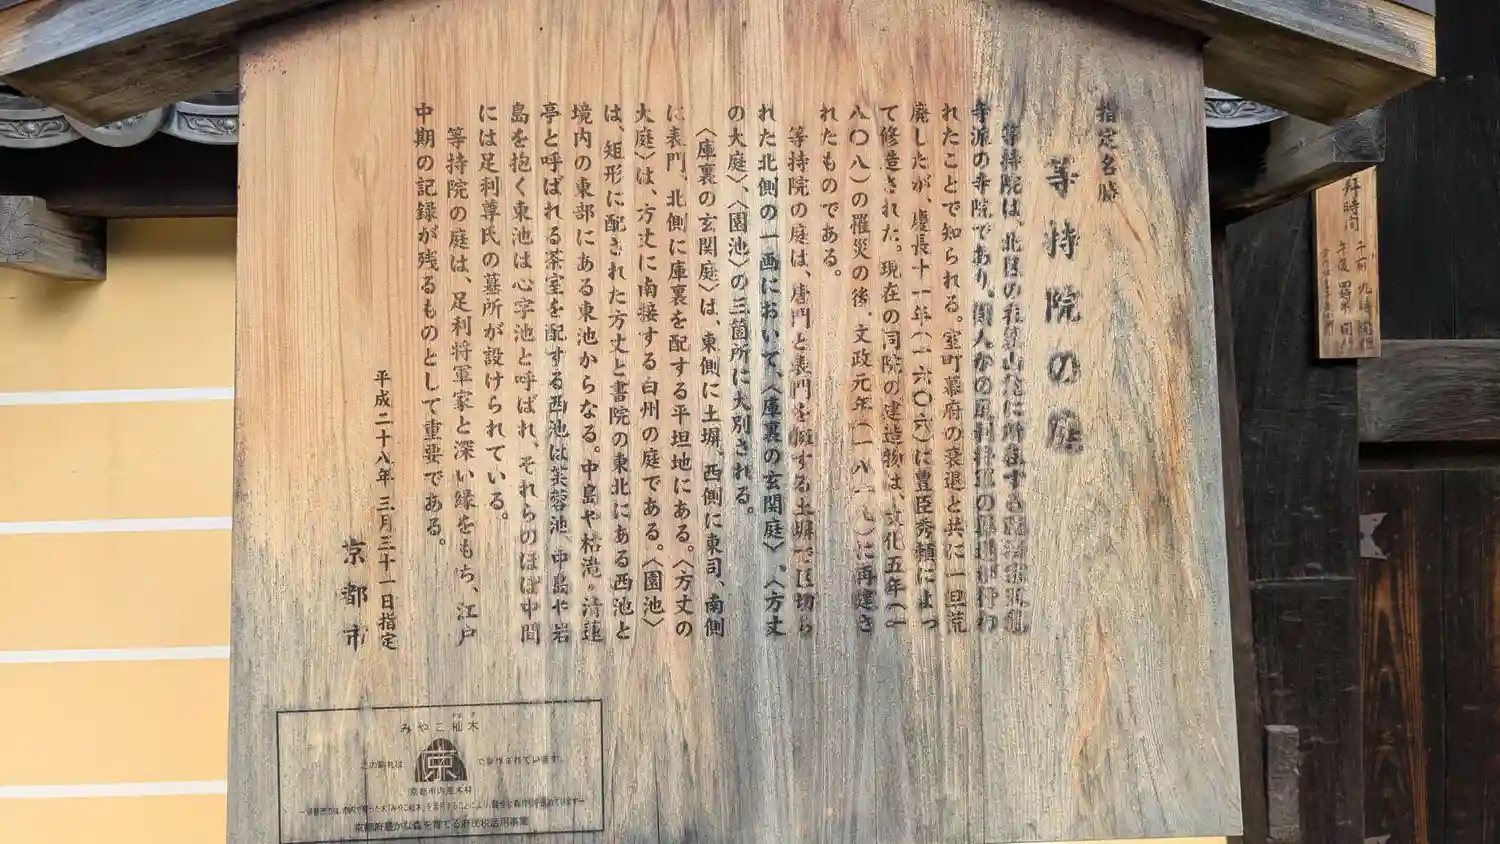 指定名勝
等持院の庭
等持院は、北区の衣笠山麓に所在する臨済宗天龍
寺派の寺院であり、
れたことで知られる。室町幕府の衰退と共に一旦荒
廃したが、慶長十一年(一六〇六)に豊臣秀頼によっ
て修造された。現在の同院の建造物は、文化五年(一
八〇八)の罹災の後、文政元年(一八一八)に再建さ
れたものである。
等持院の庭は、唐門と表門を擁する土塀で区切ら
れた北側の一画において、〈庫裏の玄関庭〉、〈方丈
の大庭〉、〈園池〉の三箇所に大別される。
〈庫裏の玄関庭〉は、東側に土塀、西側に東司、南側
に表門、北側に庫裏を配する平坦地にある。〈方丈の
大庭〉は、方丈に南接する白州の庭である。〈園池〉
は、矩形に配された方丈と書院の東北にある西池と
境内の東部にある東池からなる。中島や枯滝、清蓮
亭と呼ばれる茶室を配する西池は芙蓉池、中島や岩
島を抱く東池は心字池と呼ばれ、それらのほぼ中間
には足利尊氏の墓所が設けられている。
等持院の庭は、足利将軍家と深い縁をもち、江戸
中期の記録が残るものとして重要である。
平成二十八年三月三十一日指定
京都市
みやこ杣木
この駒札は
京
で製作されています。
京都市内産木材
京都府豊かな森を育てる府民税活用事業
拝時間
午前 九時
午後 四時半